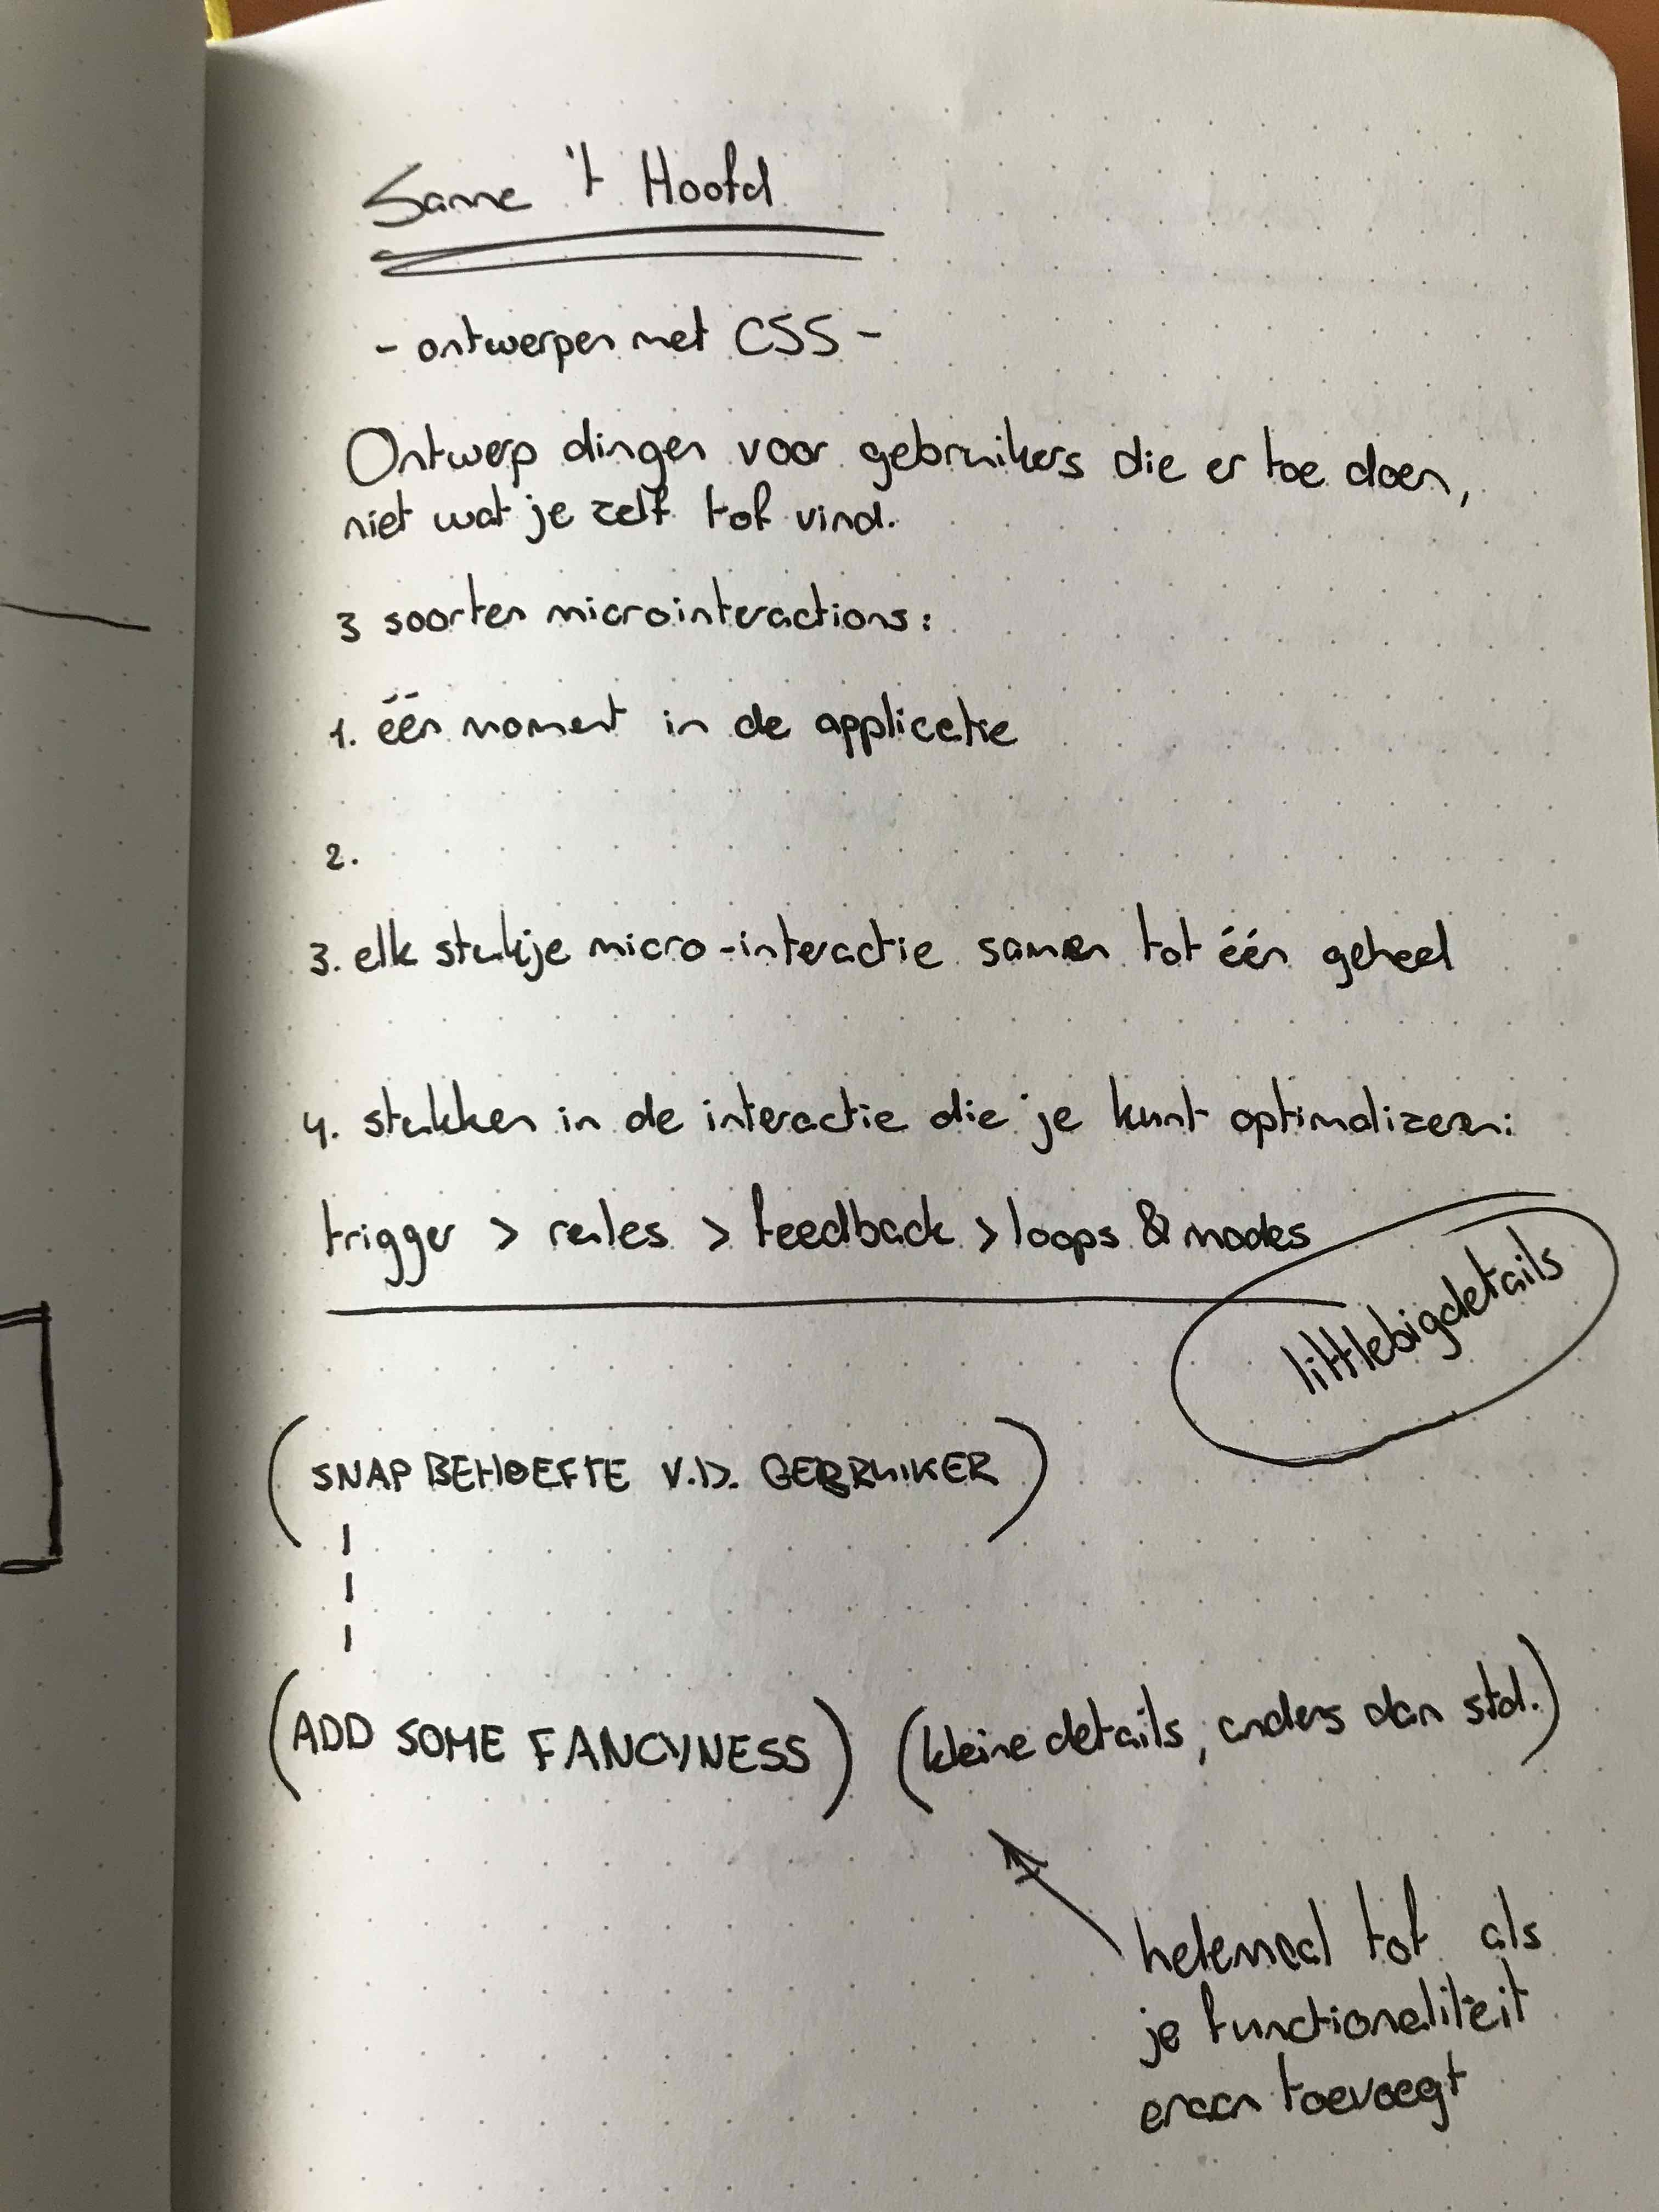 Sanne 't Hoofd
- ontwerpen met CSS -
Ontwerp dingen voor gebruikers die er toe doen,
niet wat je zelf tof vind.
3 soorten microinteractions:
1. één moment in de applicatie
2.
3. elk stukje micro-interactie samen tot één geheel
4. stukken in de interactie die je kunt optimalizeren:
trigger > rules > feedback > loops & modes
littlebigdetails
(SNAP BEHOEFTE V.D. GEBRUIKER)
(ADD SOME FANCYNESS) (kleine details, anders dan std.)
helemaal tof als
je functionaliteit
eraan toevoegt